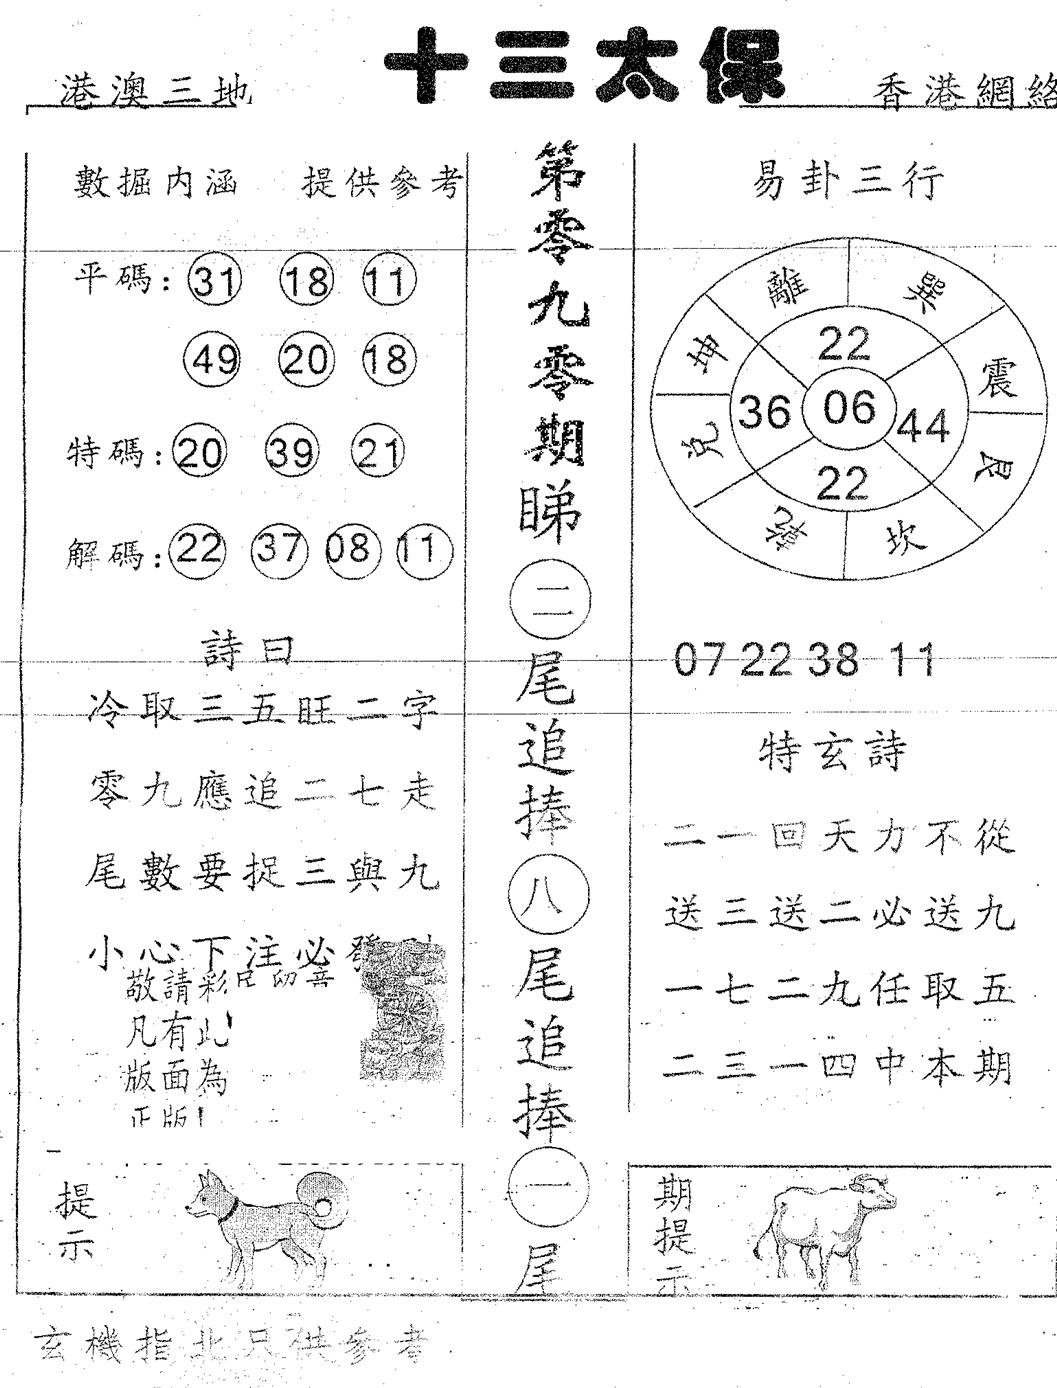 十三太保
港澳三地
香港網絡
數掘内涵 提供參考
平碼: 31 18 11
49 20 18
特碼: 20 39 21
解碼: 22 37 08 11
詩曰
冷取三五旺二字
零九應追二七走
尾數要捉三與九
小心下注必發
敬請彩民留意
凡有此
版面為
正版!
提示
第零九零期
睇二尾追捧八尾追捧一尾
易卦三行
離 巽
坤 震
兌 艮
乾 坎
22
36 06 44
22
07 22 38 11
特玄詩
二一回天力不從
送三送二必送九
一七二九任取五
二三一四中本期
期提示
玄機指北只供參考